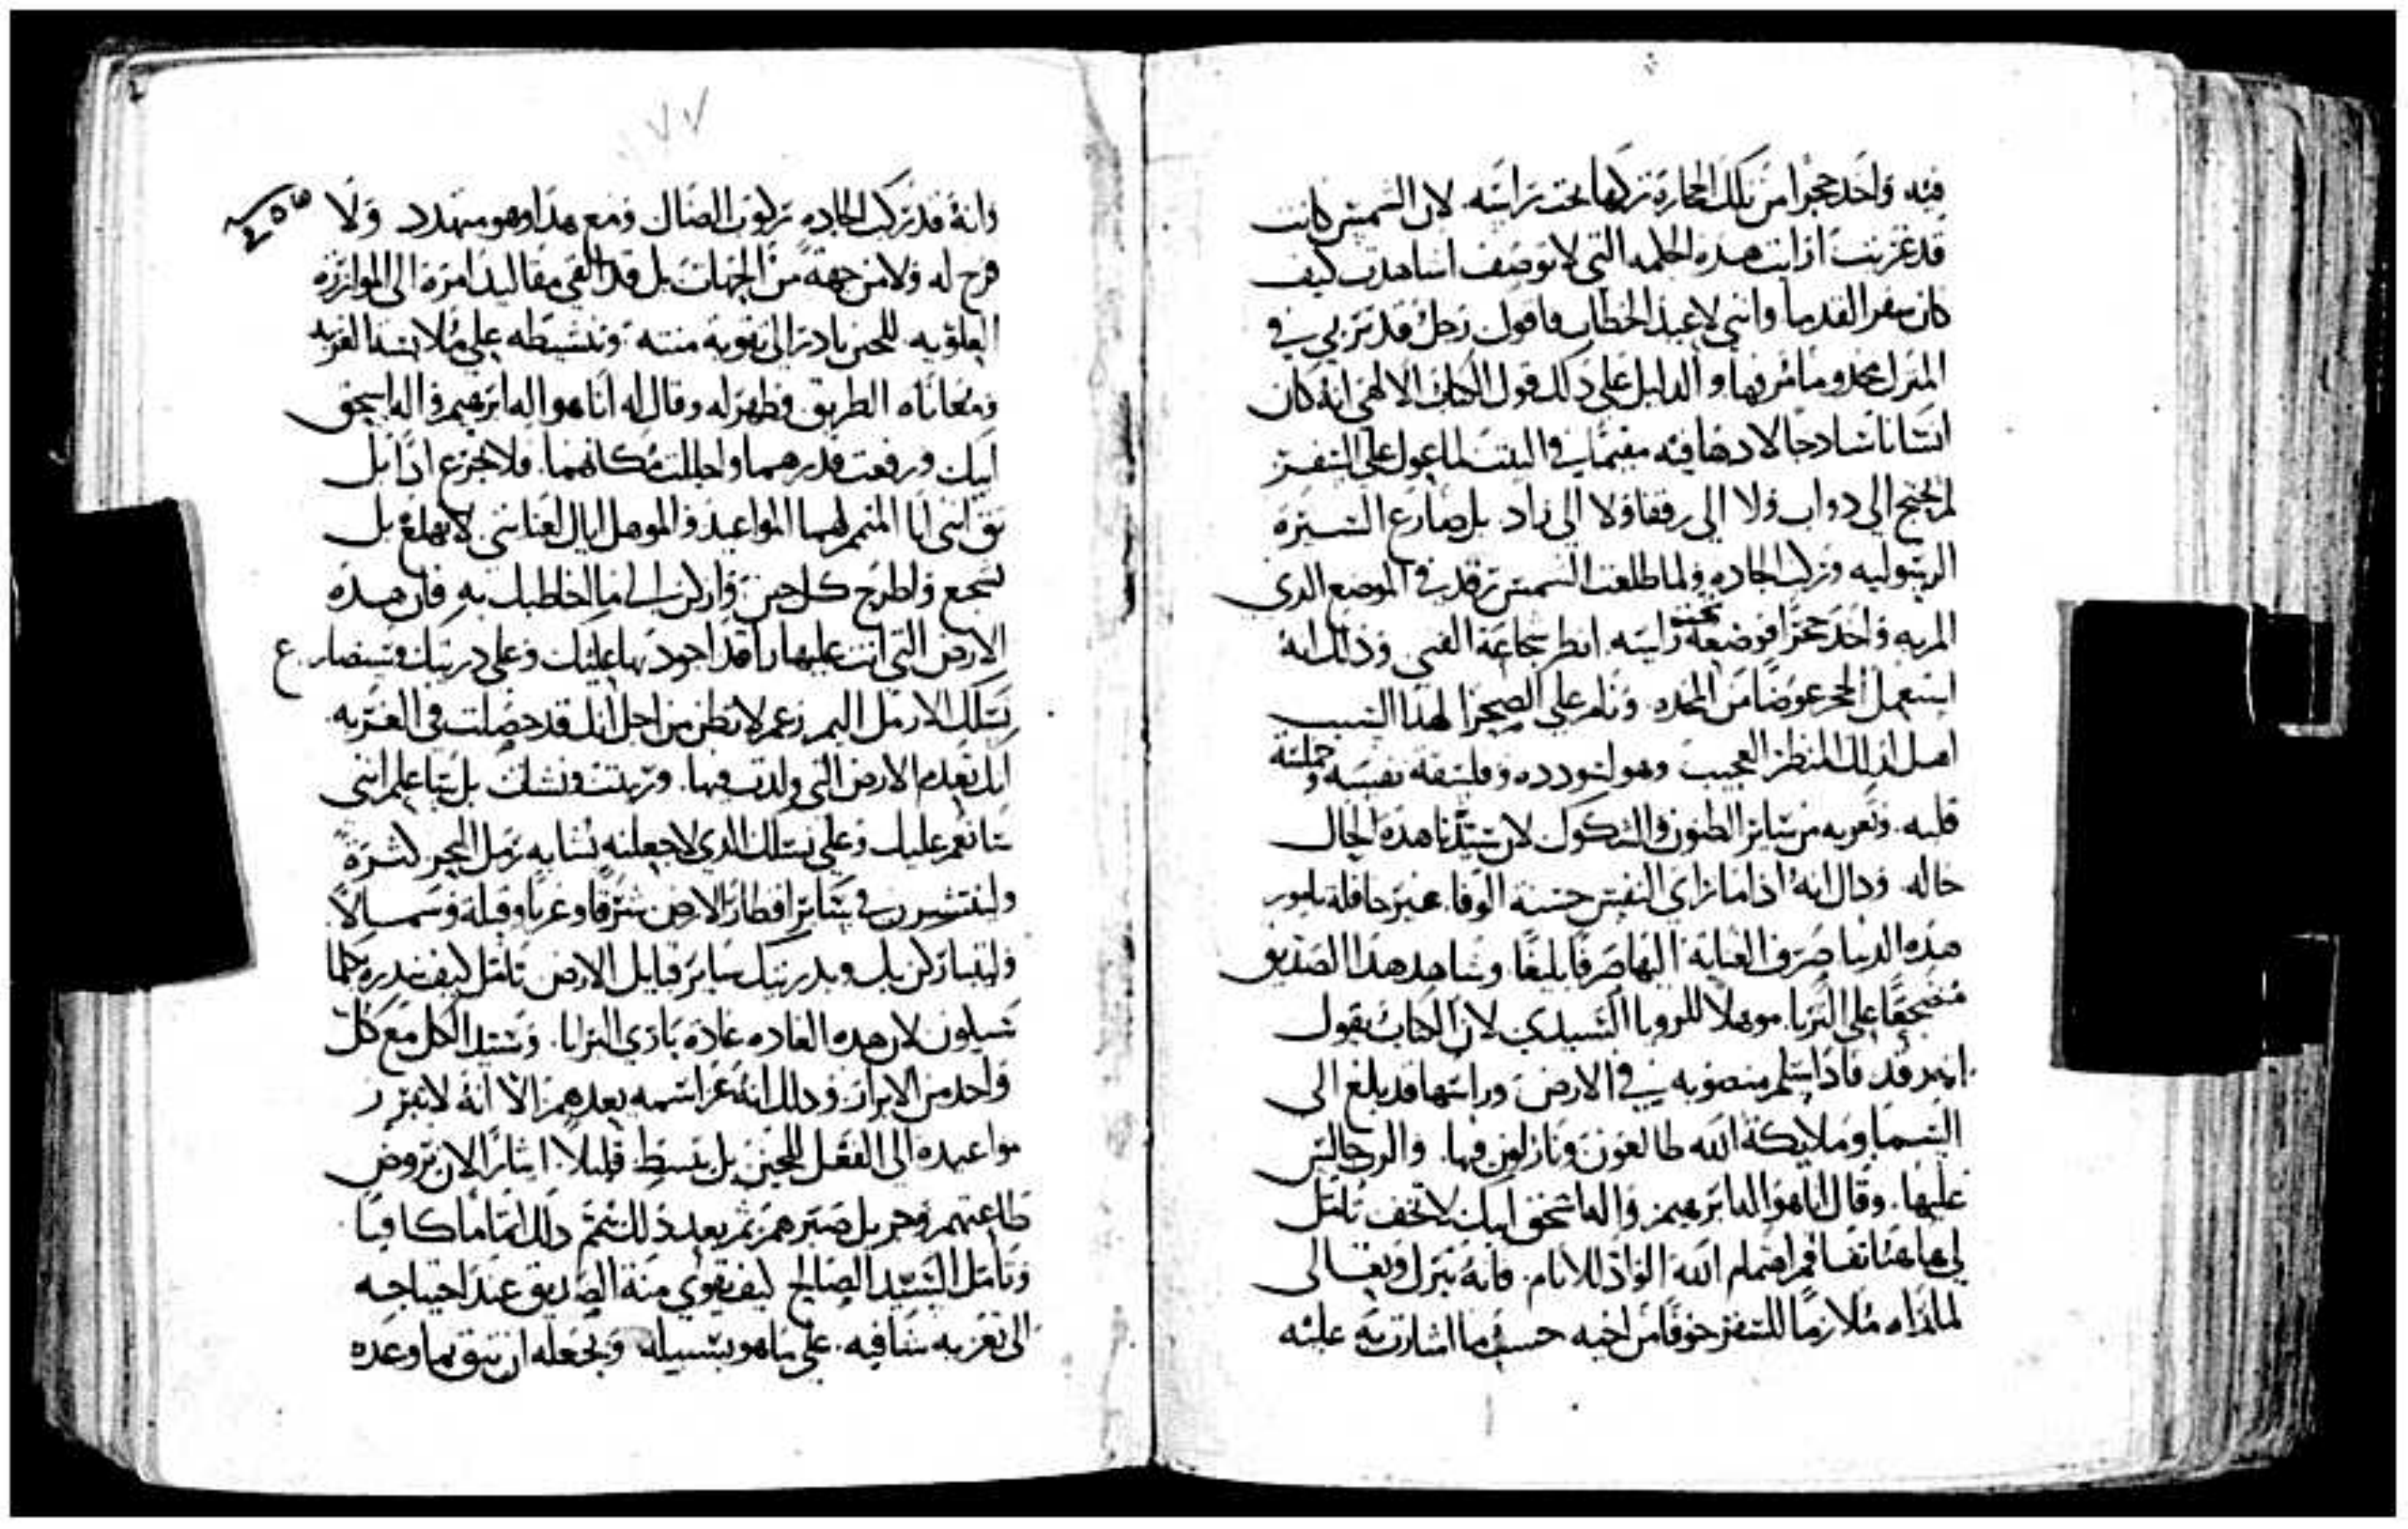 فيه واخد حجرا من تلك الحجارة تركها تحت راسه لان الشمس كانت
قد غربت ارايت هذه الحكمه التي لا توصف اشاهدت كيف
كان سفر القدما وانني لاعيد الخطاب فاقول رجل قد تربي في
المنزل مخدوما مترفها والدليل علي ذلك قول الكتاب الالهي انه كان
انسانا شادجا لا دها فيه مقيما في البيت لما عول علي السفر
لم يحتج الي دواب ولا الي رفقا ولا الي زاد بل صارع السيرة
الرسوليه وركب الجاده ولما طلعت الشمس رقد في الموضع الدي
المر به واخد حجرا فوضعه تحت راسه انظر شجاعة الفتي وذلك انه
استعمل الحجر عوضا من المخده ونام علي الصحرا لهذا السبب
اهل لذلك المنظر العجيب وهو لتودده وفلسفة نفسه وحملته
قلبه وتعريه من ساير الظنون والشكوك لان سيدنا هده الحال
حاله ودال انه اذا ما راي النفس حسنة الوفا غير حافلة بامور
هده الدنيا صرف العناية اليها صرفا بليغا وشاهد هدا الصديق
مضجعا علي التربا موهلا للرويا السيدي لان الكتاب يقول
انه رقد فاذا سلم منصوبه في الارض وراسها قد بلغ الي
السما وملايكة الله طالعون ونازلون فيها والرب جالس
عليها وقال انا هو اله ابرهيم واله اسحق ابيك لا تخف تامل
لي هاهنا تفاقم اهتمام الله الواد للانام فانه تنزل وتعالي
لما راه ملازما للسفر خوفا من اخيه حسب ما اشارت به عليه
٧٧
وانه قد ركب الجاده ركوب الضال ومع هدا وهو متهدد ولا
فرح له ولا من جهة من الجهات بل قد القي مقاليد امره الي الموازرة
العلويه للحين بادر الي تقوية منته وتنشيطه علي ملابسة الغربه
ومعاناة الطريق فظهر له وقال له انا هو اله ابرهيم واله اسحق
ابيك ورفعت قدرهما واجللت مكانهما فلا تجزع اذا بل
ثق انني انا المتمم لهما المواعيد والموهل اياك لعنايتي لا تهلع بل
تشجع واطرح كل حزن واركن الي ما اخاطبك به فان هده
الارض التي انت عليها راقد اجود بها عليك وعلي دريتك وستضارع
نسلك لارمل اليم زعم لا تظن من اجل انك قد حصلت في الغربه
انك تعدم الارض التي ولدت فيها وربيت ونشات بل ستاعلم انني
سانعم عليك وعلي نسلك الدي لاجعلنه يشابه رمل البحر كثرة
ولينتشرون في ساير اقطار الارض شرقا وغربا وقبلة وشمالا
وليتباركن بك وبدريتك ساير قبايل الارض تامل كيف يندره بما
سيلون لان هده العاده عادة باري البرايا وسيد الكل مع كل
واحد من الابرار ودلك انه عز اسمه يعدهم الا انه لا يبرز
مواعيده الي الفعل للحين بل يتبسط قليلا ايثارا لان تروض
طاعتهم وجزيل صبرهم ثم بعد ذلك يتمم دلك اتماما كافيا
وتامل السيد الصالح كيف يقوي منة الصديق عند احتياجه
الي تعزيه شافيه علي ما هو بسبيله ويجعله ان يثق بما وعده